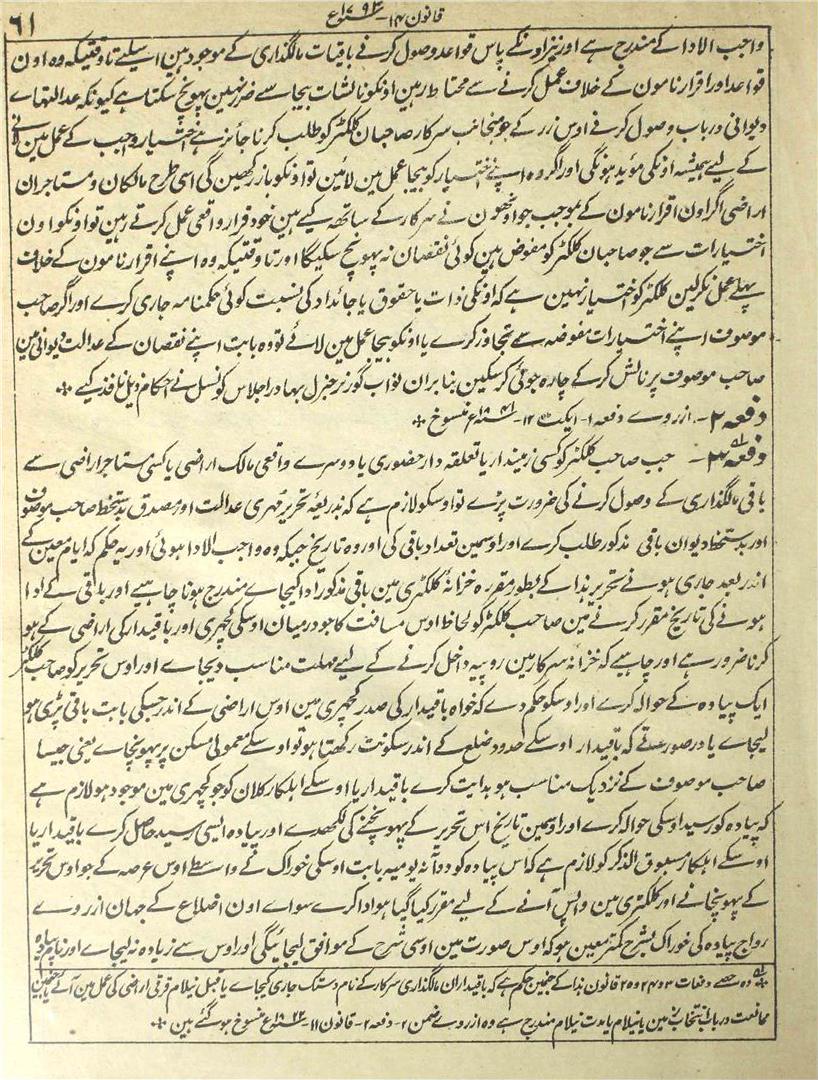 قانون ۱۴ سنہ ۱۷۹۳ع
۶۱
واجب الادا کے مندرج ہے اور نیز اونکے پاس قواعد وصول کرنے باقیات مالگذاری کے موجود ہین اس لیے تا وقتیکہ وہ اون
قواعد اور اقرار نامون کے خلاف عمل کرنے سے محتاط رہین اونکو نالشات بیجا سے ضرر نہین پہونچ سکتا ہے کیونکہ عدالتہاے
دیوانی در باب وصول کرنے اوس زر کے جو منجانب سرکار صاحبان کلکٹر کو طلب کرنا جائز ہے اختیار واجب کے عمل مین لانے
کے لیے ہمیشہ اونکی مؤید ہونگی اور اگر وہ اپنے اختیار کو بیجا عمل مین لائین تو اونکو باز رکھین گی اسی طرح مالکان و مستاجران
اراضی اگر اون اقرار نامون کے بموجب جو اونھون نے سرکار کے ساتھ کیے ہین خود قرار واقعی عمل کرتے رہین تو اونکو اون
اختیارات سے جو صاحبان کلکٹر کو مفوض ہین کوئی نقصان نہ پہونچ سکیگا اور تا وقتیکہ وہ اپنے اقرار نامون کے خلاف
پہلے عمل نکرلین کلکٹر کو اختیار نہین ہے کہ اونکی ذات یا حقوق یا جائداد کی نسبت کوئی حکمنامہ جاری کرے اور اگر صاحب
موصوف اپنے اختیارات مفوضہ سے تجاوز کرے یا اونکو بیجا عمل مین لائے تو وہ بابت اپنے نقصان کے عدالت دیوانی مین
صاحب موصوف پر نالش کرکے چارہ جوئی کرسکین بنابران نواب گورنر جنرل بہادر اجلاس کونسل نے احکام ذیل نافذ کیے ٭
دفعہ ۲ - ازروے دفعہ ۱ - ایکٹ ۱۲ - سنہ ۱۸۴۱ع منسوخ ٭
دفعہ ۳ - جب صاحب کلکٹر کو کسی زمیندار یا تعلقہ دار حضوری یا دوسرے واقعی مالک اراضی یا کسی مستاجر اراضی سے
باقی مالگذاری کے وصول کرنے کی ضرورت پڑے تو اوسکو لازم ہے کہ بذریعہ تحریر مہری عدالت اور مصدق بدستخط صاحب موصوف
اور بدستخط دیوان باقی مذکور طلب کرے اور اوسمین تعداد باقی کی اور وہ تاریخ جبکہ وہ واجب الادا ہوئی اور یہ حکم کہ ایام معین کے
اندر بعد جاری ہونے تحریر ہذا کے بطور مقررہ خزانہ کلکٹری مین باقی مذکور ادا کیجاے مندرج ہونا چاہیے اور باقی کے ادا
ہونے کی تاریخ مقرر کرنے مین صاحب کلکٹر کو لحاظ اوس مسافت کا جو درمیان اوسکی کچہری اور باقیدار کی اراضی کے ہو
کرنا ضرور ہے اور چاہیے کہ خزانہ سرکار مین روپیہ داخل کرنے کے لیے مہلت مناسب دیجاے اور اوس تحریر کو صاحب کلکٹر
ایک پیادہ کے حوالہ کرے اور اوسکو حکم دے کہ خواہ باقیدار کی صدر کچہری مین اوس اراضی کے اندر جسکی بابت باقی پڑی ہو
لیجاے یا در صورتے کہ باقیدار اوسکے حدود ضلع کے اندر سکونت رکھتا ہو تو اوسکے معمولی مسکن پر پہونچاے یعنی جیسا
صاحب موصوف کے نزدیک مناسب ہو ہدایت کرے باقیدار یا اوسکے اہلکار کلان کو جو کچہری مین موجود ہو لازم ہے
کہ پیادہ کو رسید اوسکی حوالہ کرے اور اوسمین تاریخ اس تحریر کے پہونچنے کی لکھدے اور پیادہ ایسی رسید حاصل کرے باقیدار یا
اوسکے اہلکار مسبوق الذکر کو لازم ہے کہ اس پیادہ کو دو آنہ یومیہ بابت اوسکی خوراک کے واسطے اوس عرصہ کے جو اوس تحریر
کے پہونچانے اور کلکٹری مین واپس آنے کے لیے مقرر کیا گیا ہو ادا کرے سواے اون اضلاع کے جہان ازروے
رواج پیادہ کی خوراک بشرح کمتر معین ہو کہ اوس صورت مین اوسی شرح کے موافق لیجائیگی اور اوس سے زیادہ نہ لیجاے اور نام پیادہ
وہ حصے دفعات ۳ و ۴ و ۷ و قانون ہذا کے جنمین حکم ہے کہ باقیداران مالگذاری سرکار کے نام دستک جاری کیجاے یا قبل نیلام قرقی اراضی کی عمل مین آئے یا جنمین
ممانعت در باب انتخاب زمین یا نیلام یا مدت نیلام مندرج ہے وہ ازروے ضمن ۲ - دفعہ ۲ - قانون ۱۱ - سنہ ۱۸۲۲ع منسوخ ہوگئے ہین ٭